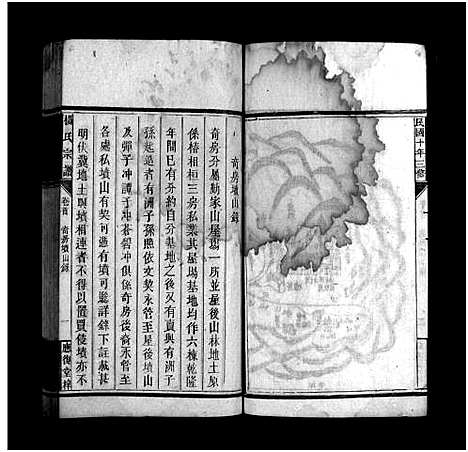 民國十年三修
奇房墳山錄
奇房分屬動家山屋場一所並屋後山林地土原
係椿相桓三房私業其屋場基地均作六棟乾隆
年間已有分約自分基地之後又有賣與有洲子
孫起造者有洲子孫照依文契永管至屋後墳山
及彈子冲譚子冲苍碧冲俱係奇房後裔永管至
各處私墳山有墳可憑有據可驗詳錄下註載甚
明伏冀墳土與墳相連者不得以置買侵墳亦不
楊氏宗譜
卷首
奇房墳山錄
一
應復堂梓